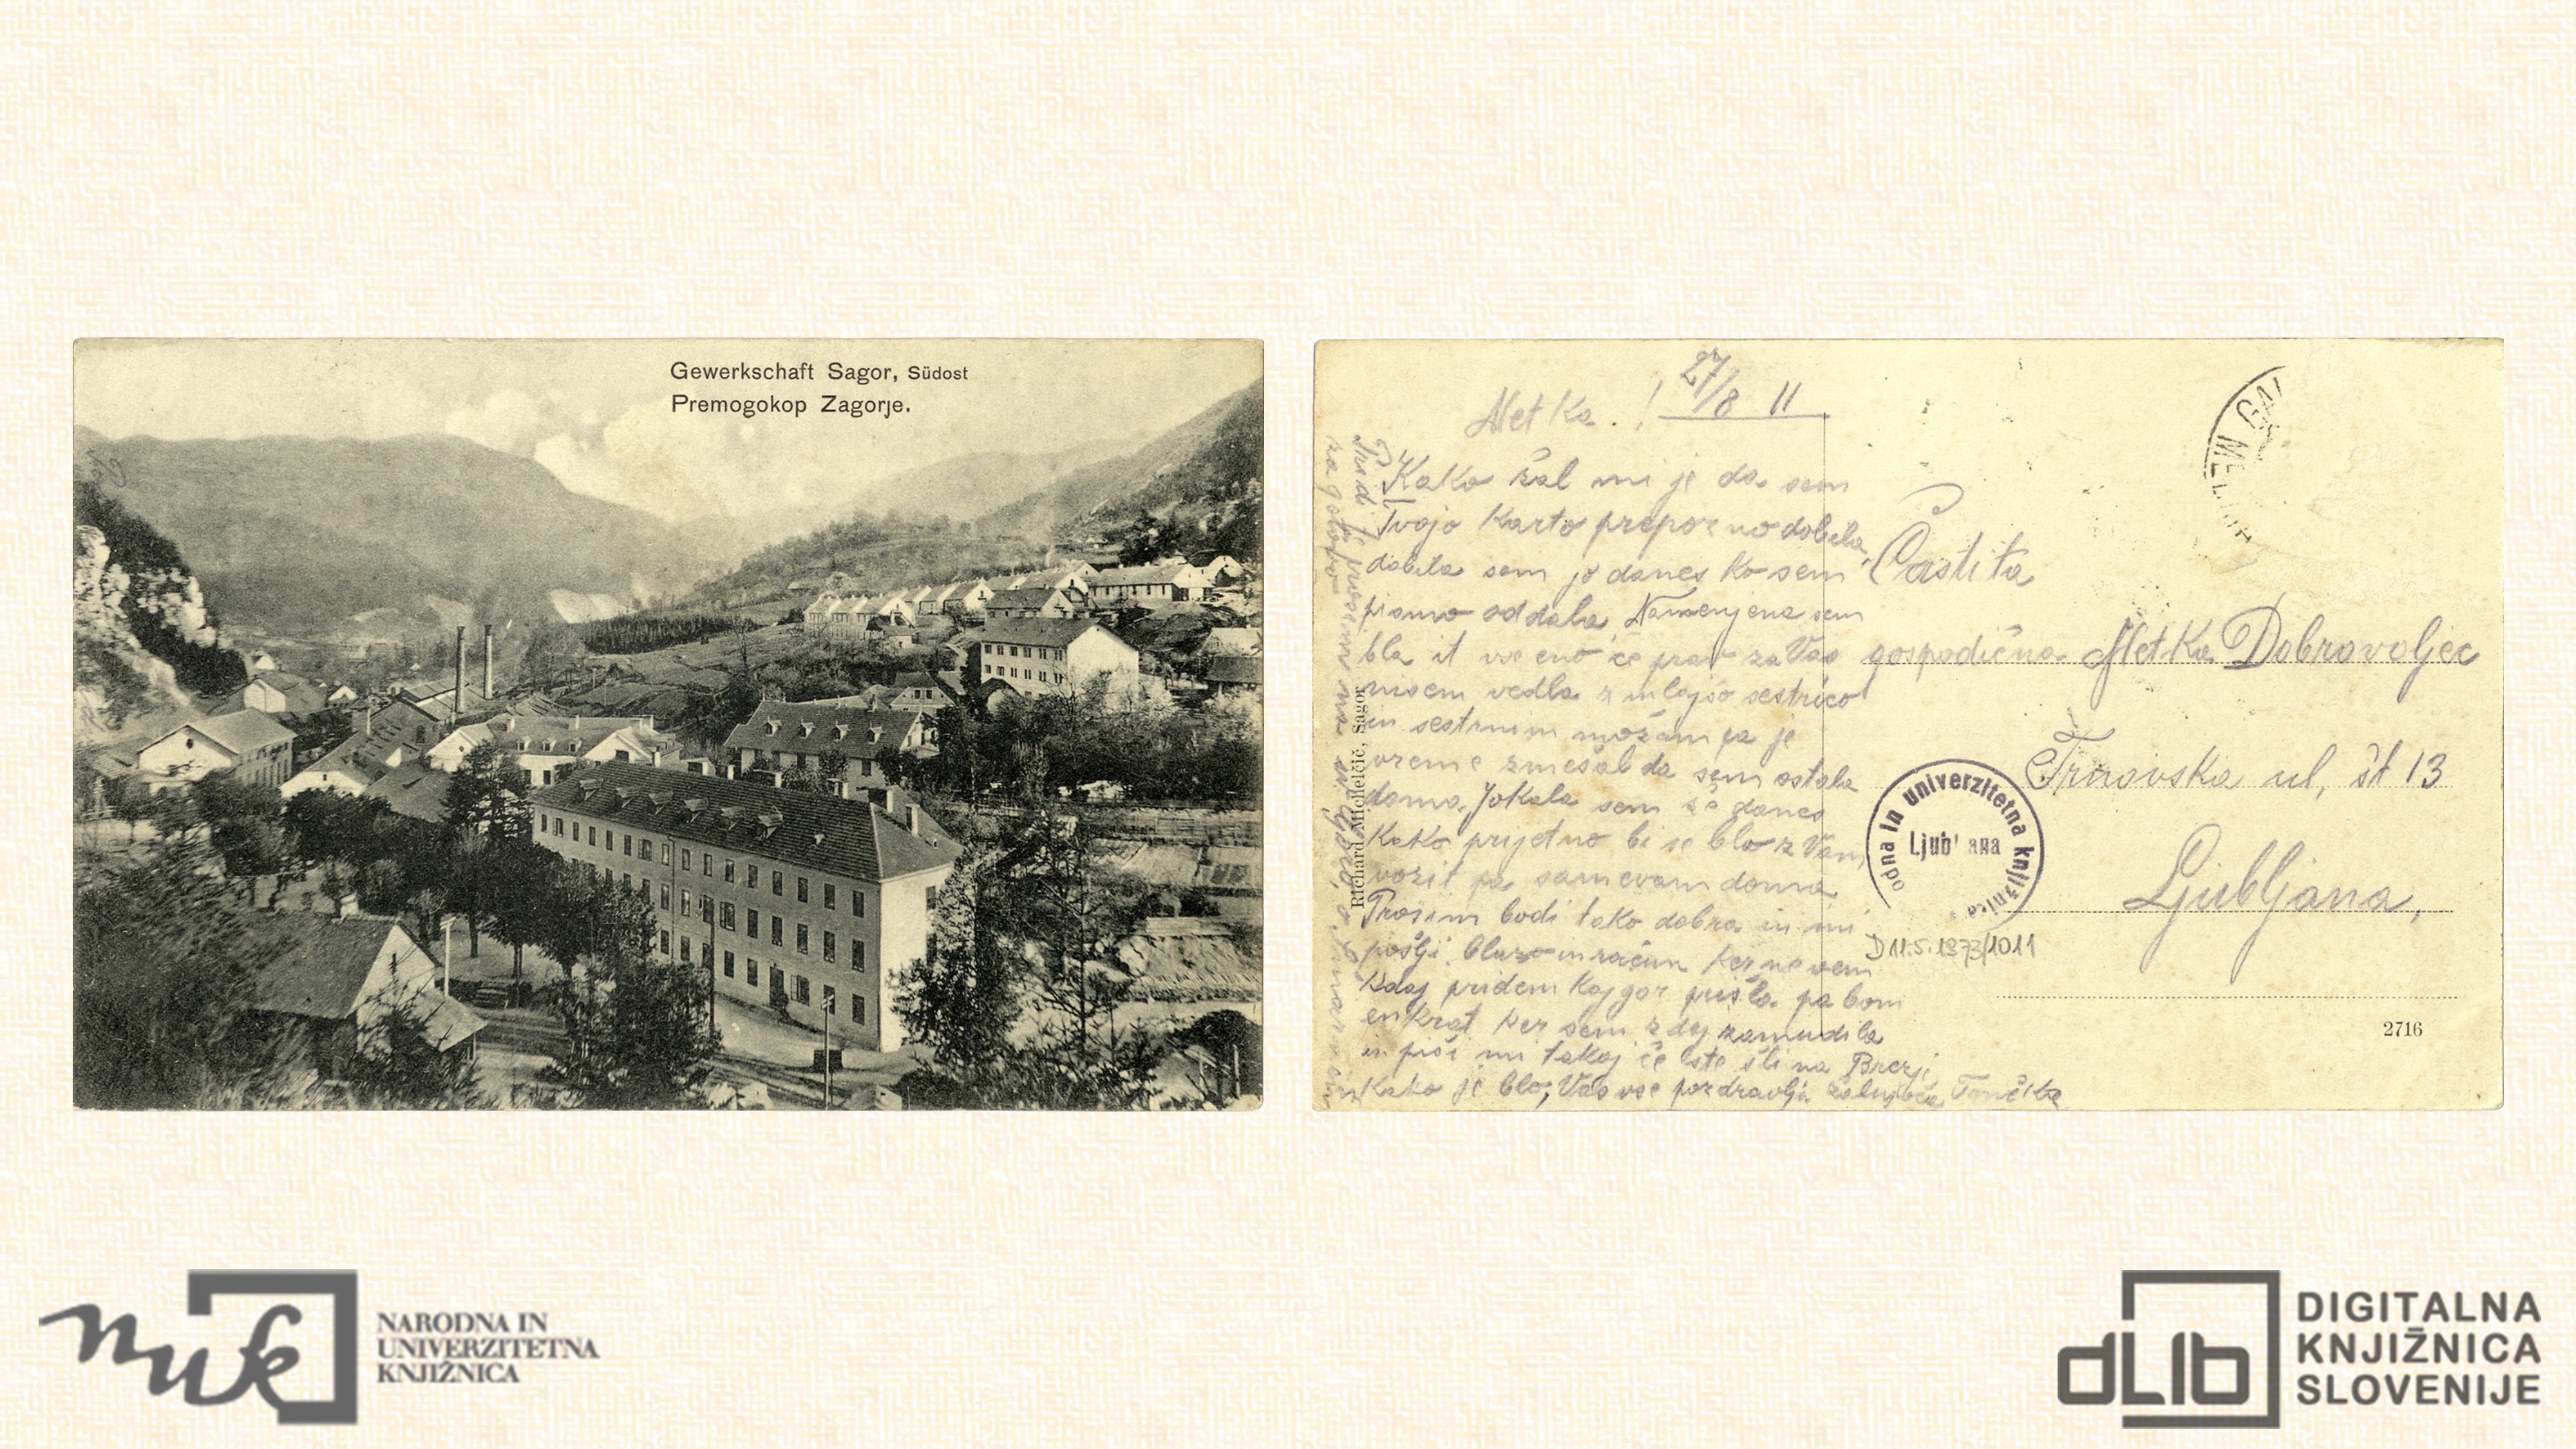 Gewerkschaft Sagor, Südost
Premogokop Zagorje.
27/8 11
Metka.!
Kako žal mi je da sem
Tvojo karto prepozno dobila,
dobila sem jo danes ko sem
pismo oddala, Namenjena sem
bla it vse eno če prav za Vas
nisem vedla z mlajšo sestrico
in sestrnim možam pa je
vreme zmešal da sem ostala
doma, Jokala sem že danes
kako prijetno bi se blo z Vam
vozit pa samevam doma
Prosim bodi tako dobra in mi
pošlji blazo in račun ker ne vem
kdaj pridem kaj gor prišla pa bom
enkrat ker sem zdaj zamudila
in piši mi takoj če ste šli na Brezje
kako je blo, Vas vse pozdravlja žalujoča Tončka
Tudi te prosim na
za gotovo
Richard Michelčič, Sagor
Častita
gospodična Metka Dobrovoljec
Trnovska ul, št 13
Ljubljana,
odna in univerzitetna knjižnica
Ljub ana
D 11.5.1973/1011
2716
nuk
NARODNA IN
UNIVERZITETNA
KNJIŽNICA
dLib
DIGITALNA
KNJIŽNICA
SLOVENIJE